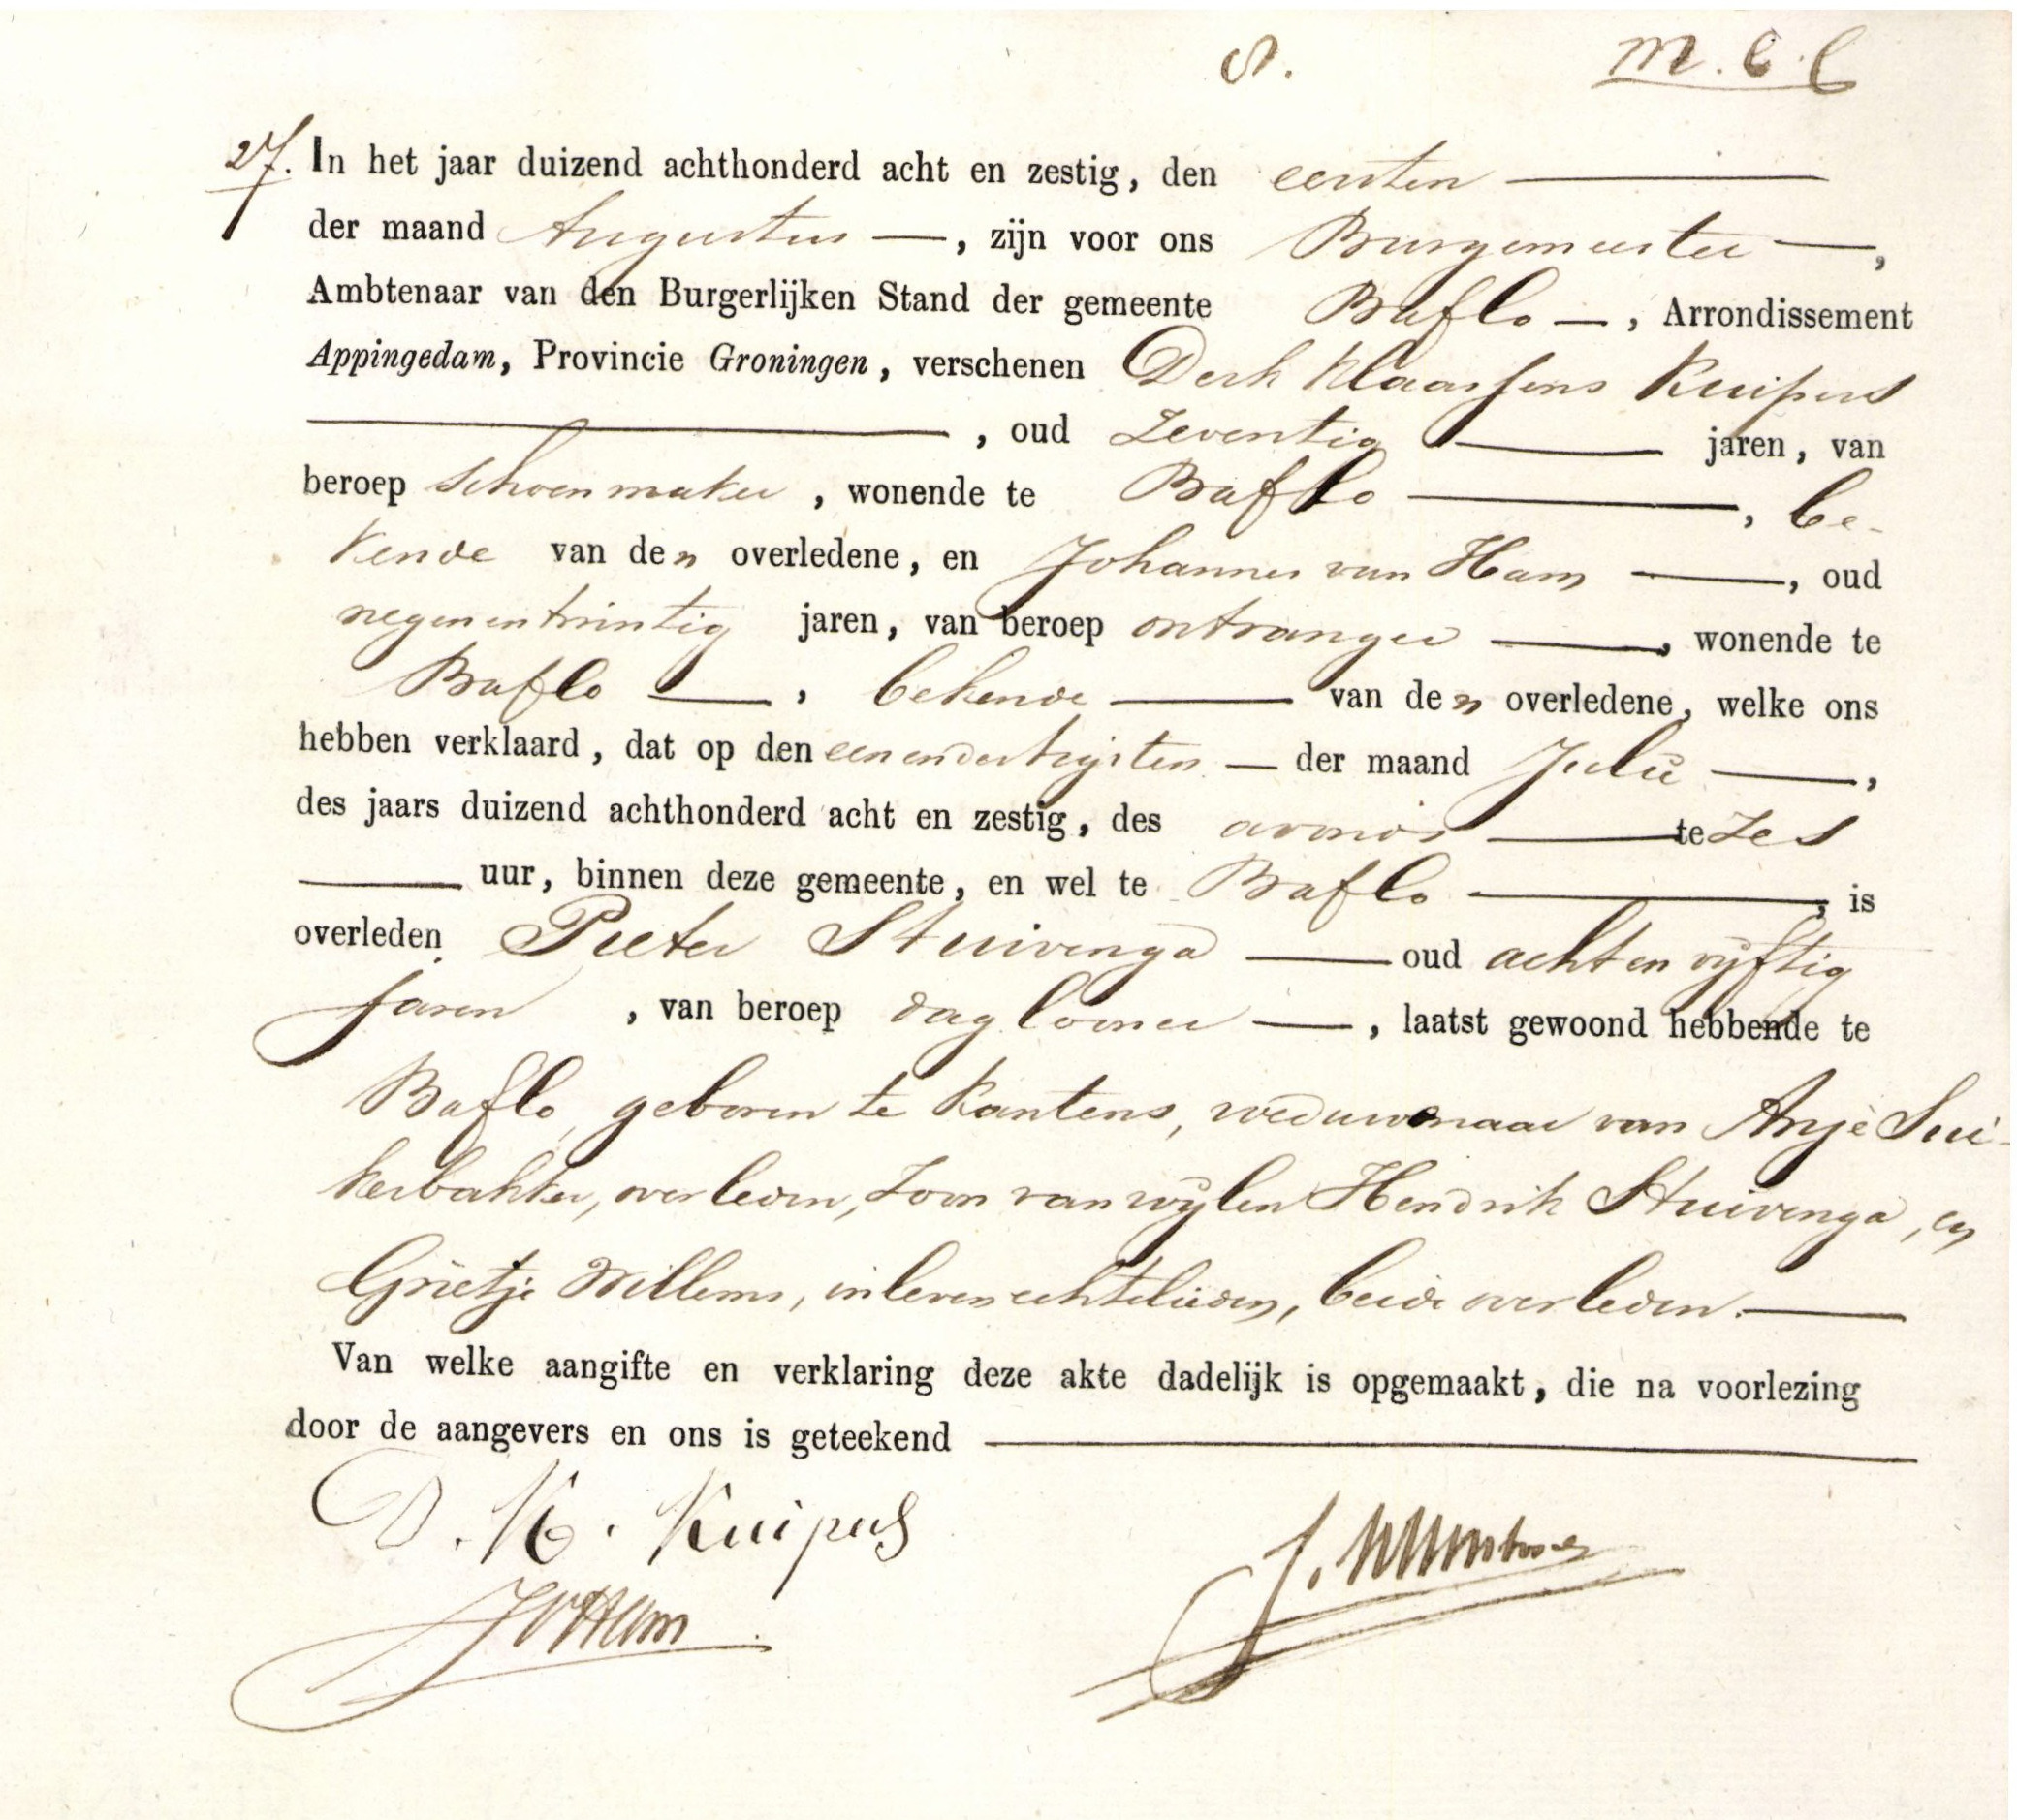 8. m. C. C
27. In het jaar duizend achthonderd acht en zestig, den eersten
der maand Augustus, zijn voor ons Burgemeester,
Ambtenaar van den Burgerlijken Stand der gemeente Baflo, Arrondissement
Appingedam, Provincie Groningen, verschenen Derk Klaassens Kuipers
, oud Zeventig jaren, van
beroep schoenmaker, wonende te Baflo, be-
kende van den overledene, en Johannes van Ham, oud
negenentwintig jaren, van beroep ontvanger, wonende te
Baflo, bekende van den overledene, welke ons
hebben verklaard, dat op den eenendertigsten der maand Julij,
des jaars duizend achthonderd acht en zestig, des avonds te zes
uur, binnen deze gemeente, en wel te Baflo, is
overleden Pieter Stuivenga oud acht en vijftig
jaren, van beroep daglooner, laatst gewoond hebbende te
Baflo, geboren te Kantens, weduwenaar van Anje Sui-
kerbakker, overleden, zoon van wijlen Hendrik Stuivenga, en
Grietje Willems, in leven echtelieden, beide overleden.
Van welke aangifte en verklaring deze akte dadelijk is opgemaakt, die na voorlezing
door de aangevers en ons is geteekend
D. K. Kuipers
JvHam